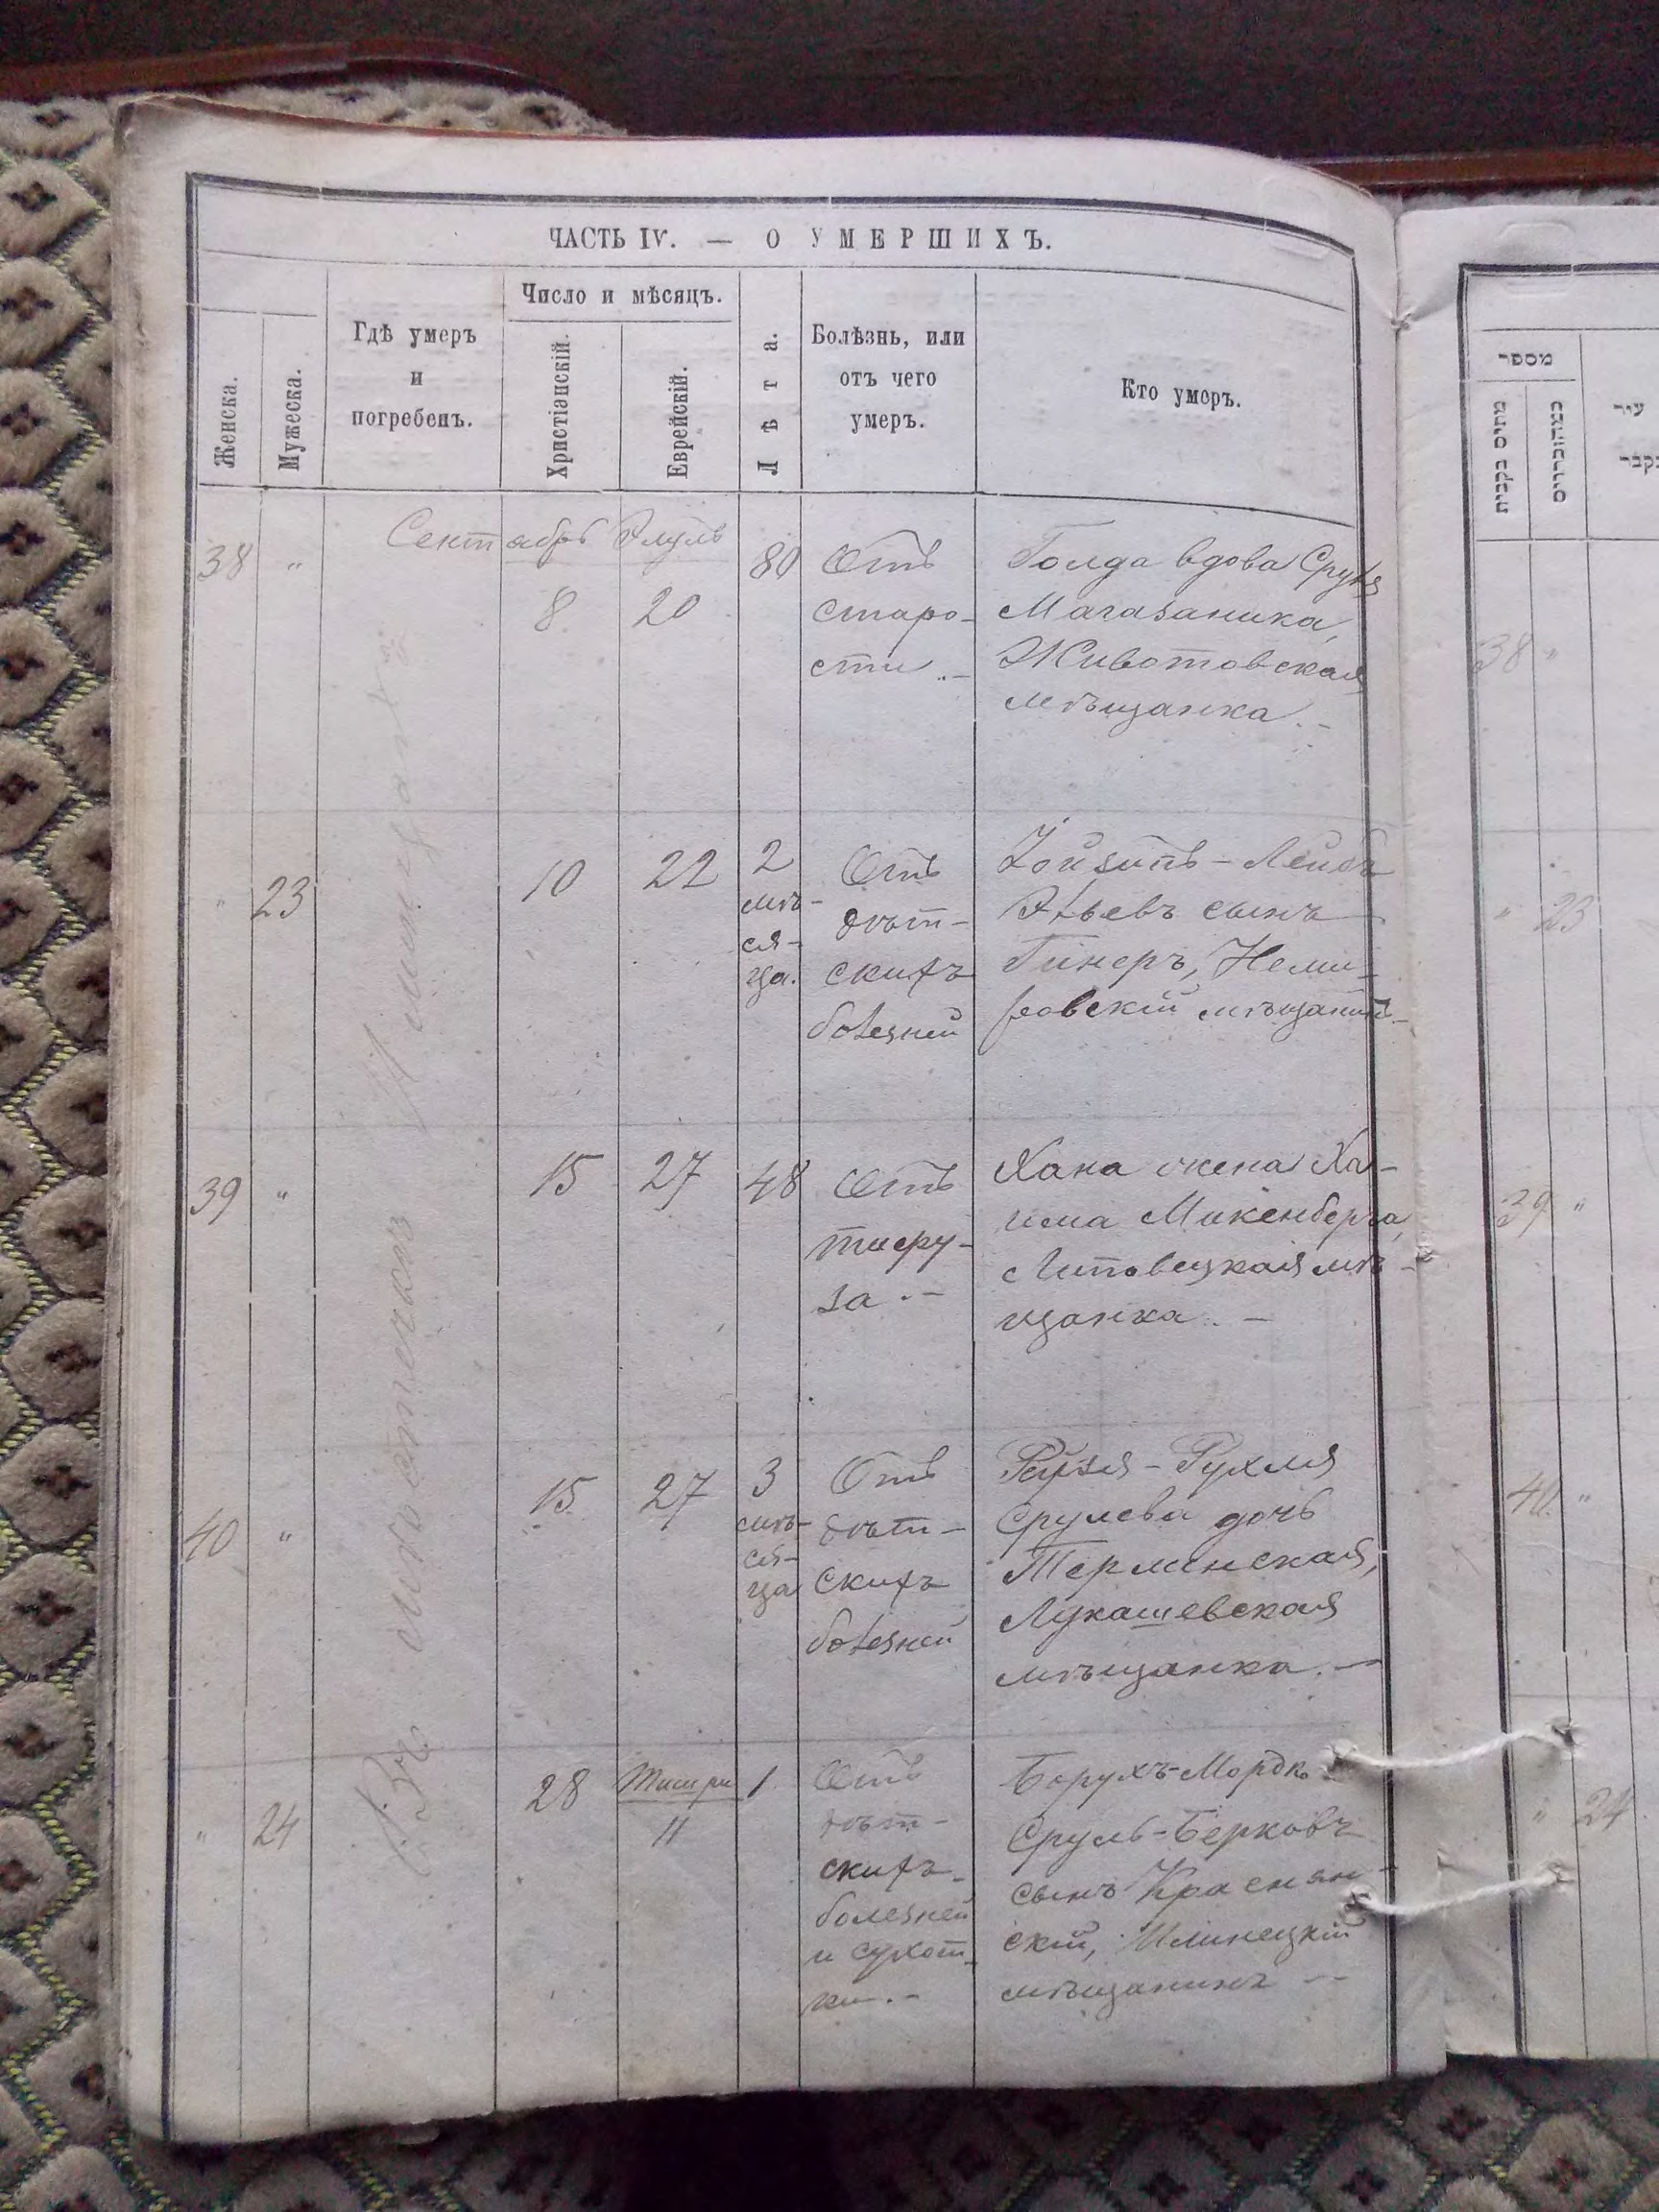 ЧАСТЬ IV. — О УМЕРШИХЪ.
Женска.
Мужеска.
Гдѣ умеръ
и
погребенъ.
Число и мѣсяцъ.
Христіанскій.
Еврейскій.
Лѣта.
Болѣзнь, или
отъ чего
умеръ.
Кто умеръ.
Въ мѣстечкѣ
38 "
Сентябрь Элуль
8 20
80
Отъ
старо-
сти .-
Голда вдова Сруля
Магазаника,
Животовская
мѣщанка.-
" 23
10 22
2
мѣ-
ся-
ца.
Отъ
дѣт-
скихъ
болезней
Лейбъ
сынъ
Гинеръ, Неми-
ровскій мѣщанинъ-
39 "
15 27
48
Отъ
тифу-
за .-
Хана жена Ха-
има Микенберга,
Липовецкая мѣ-
щанка. -
40 "
15 27
3
мѣ-
ся-
ца
Отъ
дѣт-
скихъ
болезней
Рейзя-Рухля
Срулева дочь
Терлинская,
Лукашевская
мѣщанка. -
" 24
28
Тишри
11
1
Отъ
дѣт-
скихъ
болезней
и сухот-
ки.-
Борухъ-Мордко
Сруль-Берковъ
сынъ Краснян-
скій, Илинецкій
мѣщанинъ --
מספר
38 "
" 23
39 "
40. "
" 24